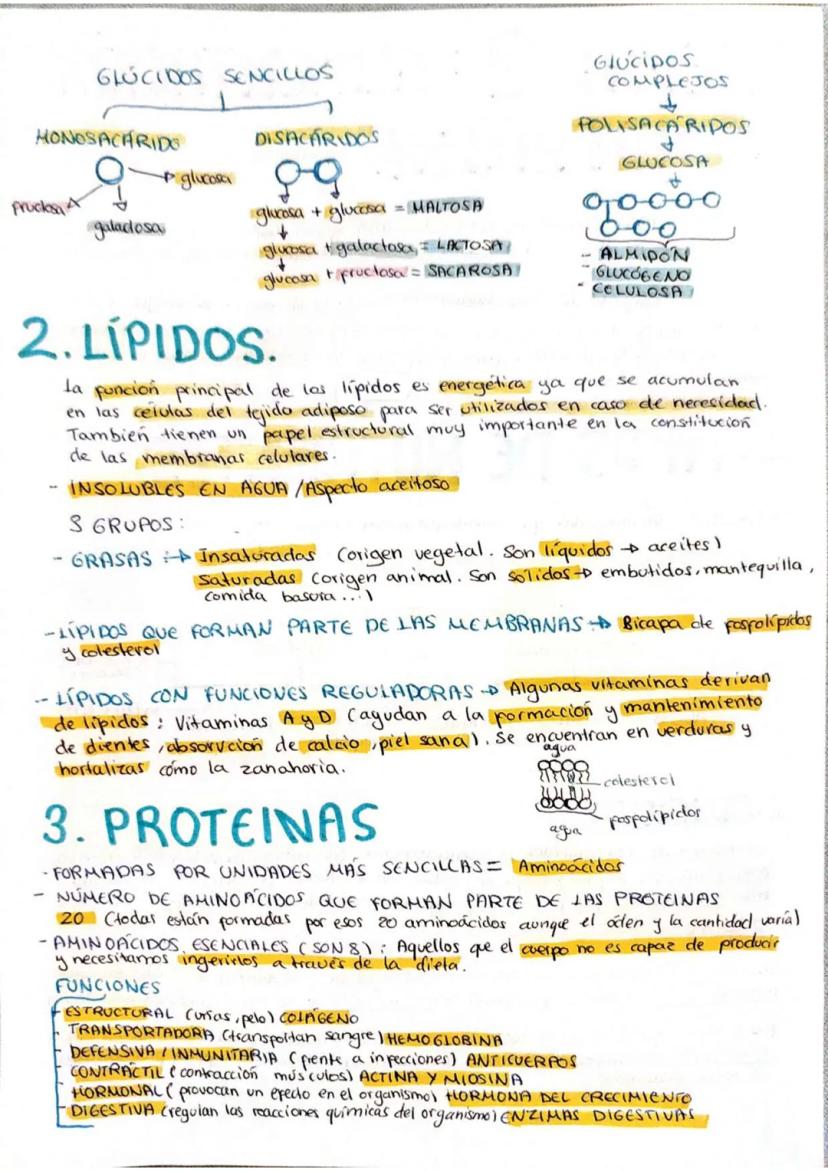 GLÚCIDOS SENCILLOS
MONOSACÁRIDO
glucosa
fructosa
galactosa
DISACÁRIDOS
glucosa + glucosa = MALTOSA
glucosa + galactosa = LACTOSA
glucosa + fructosa = SACAROSA
GLÚCIDOS
COMPLEJOS
POLISACÁRIDOS
GLUCOSA
- ALMIDÓN
- GLUCÓGENO
- CELULOSA
2. LÍPIDOS.
La función principal de los lípidos es energética ya que se acumulan
en las células del tejido adiposo para ser utilizados en caso de neresidad.
También tienen un papel estructural muy importante en la constitución
de las membranas celulares.
- INSOLUBLES EN AGUA / Aspecto aceitoso
3 GRUPOS:
- GRASAS :→ Insaturadas (origen vegetal. Son líquidos → aceites)
Saturadas (origen animal. Son sólidos → embutidos, mantequilla,
comida basura...)
- LÍPIDOS QUE FORMAN PARTE DE LAS MEMBRANAS → Bicapa de fosfolípidos
y colesterol
- LÍPIDOS CON FUNCIONES REGULADORAS → Algunas vitaminas derivan
de lípidos: Vitaminas A y D (ayudan a la formación y mantenimiento
de dientes, absorvción de calcio, piel sana). Se encuentran en verduras y
hortalizas cómo la zanahoria.
agua
colesterol
fosfolípidos
agua
3. PROTEINAS
- FORMADAS POR UNIDADES MÁS SENCILLAS = Aminoácidos
- NÚMERO DE AMINOÁCIDOS QUE FORMAN PARTE DE LAS PROTEINAS
20 (todas están formadas por esos 20 aminoácidos aunque el óden y la cantidad varía)
- AMINOÁCIDOS ESENCIALES (SON 8): Aquellos que el cuerpo no es capaz de producir
y necesitamos ingerirlos a través de la dieta.
FUNCIONES
- ESTRUCTURAL (uñas, pelo) COLÁGENO
- TRANSPORTADORA (transportan sangre) HEMOGLOBINA
- DEFENSIVA / INMUNITARIA (frente a infecciones) ANTICUERPOS
- CONTRÁCTIL (contracción músculos) ACTINA Y MIOSINA
- HORMONAL (provocan un efecto en el organismo) HORMONA DEL CRECIMIENTO
- DIGESTIVA (regulan las reacciones químicas del organismo) ENZIMAS DIGESTIVAS